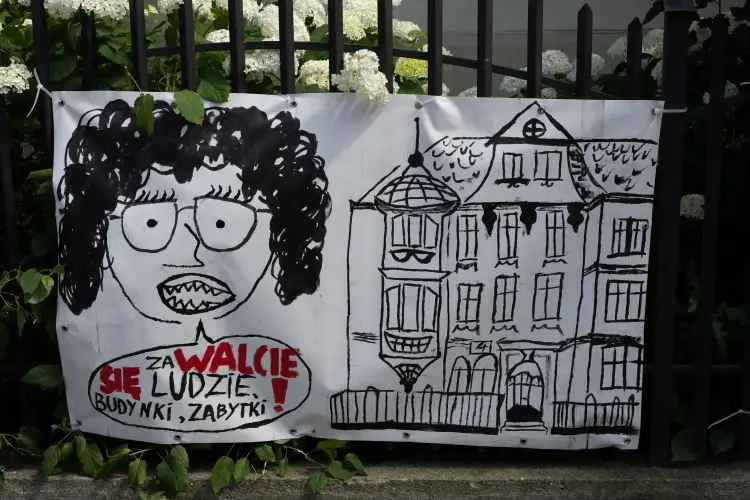 ZA WALCIE
SIĘ LUDZIE,
BUDYNKI, ZABYTKI!
4